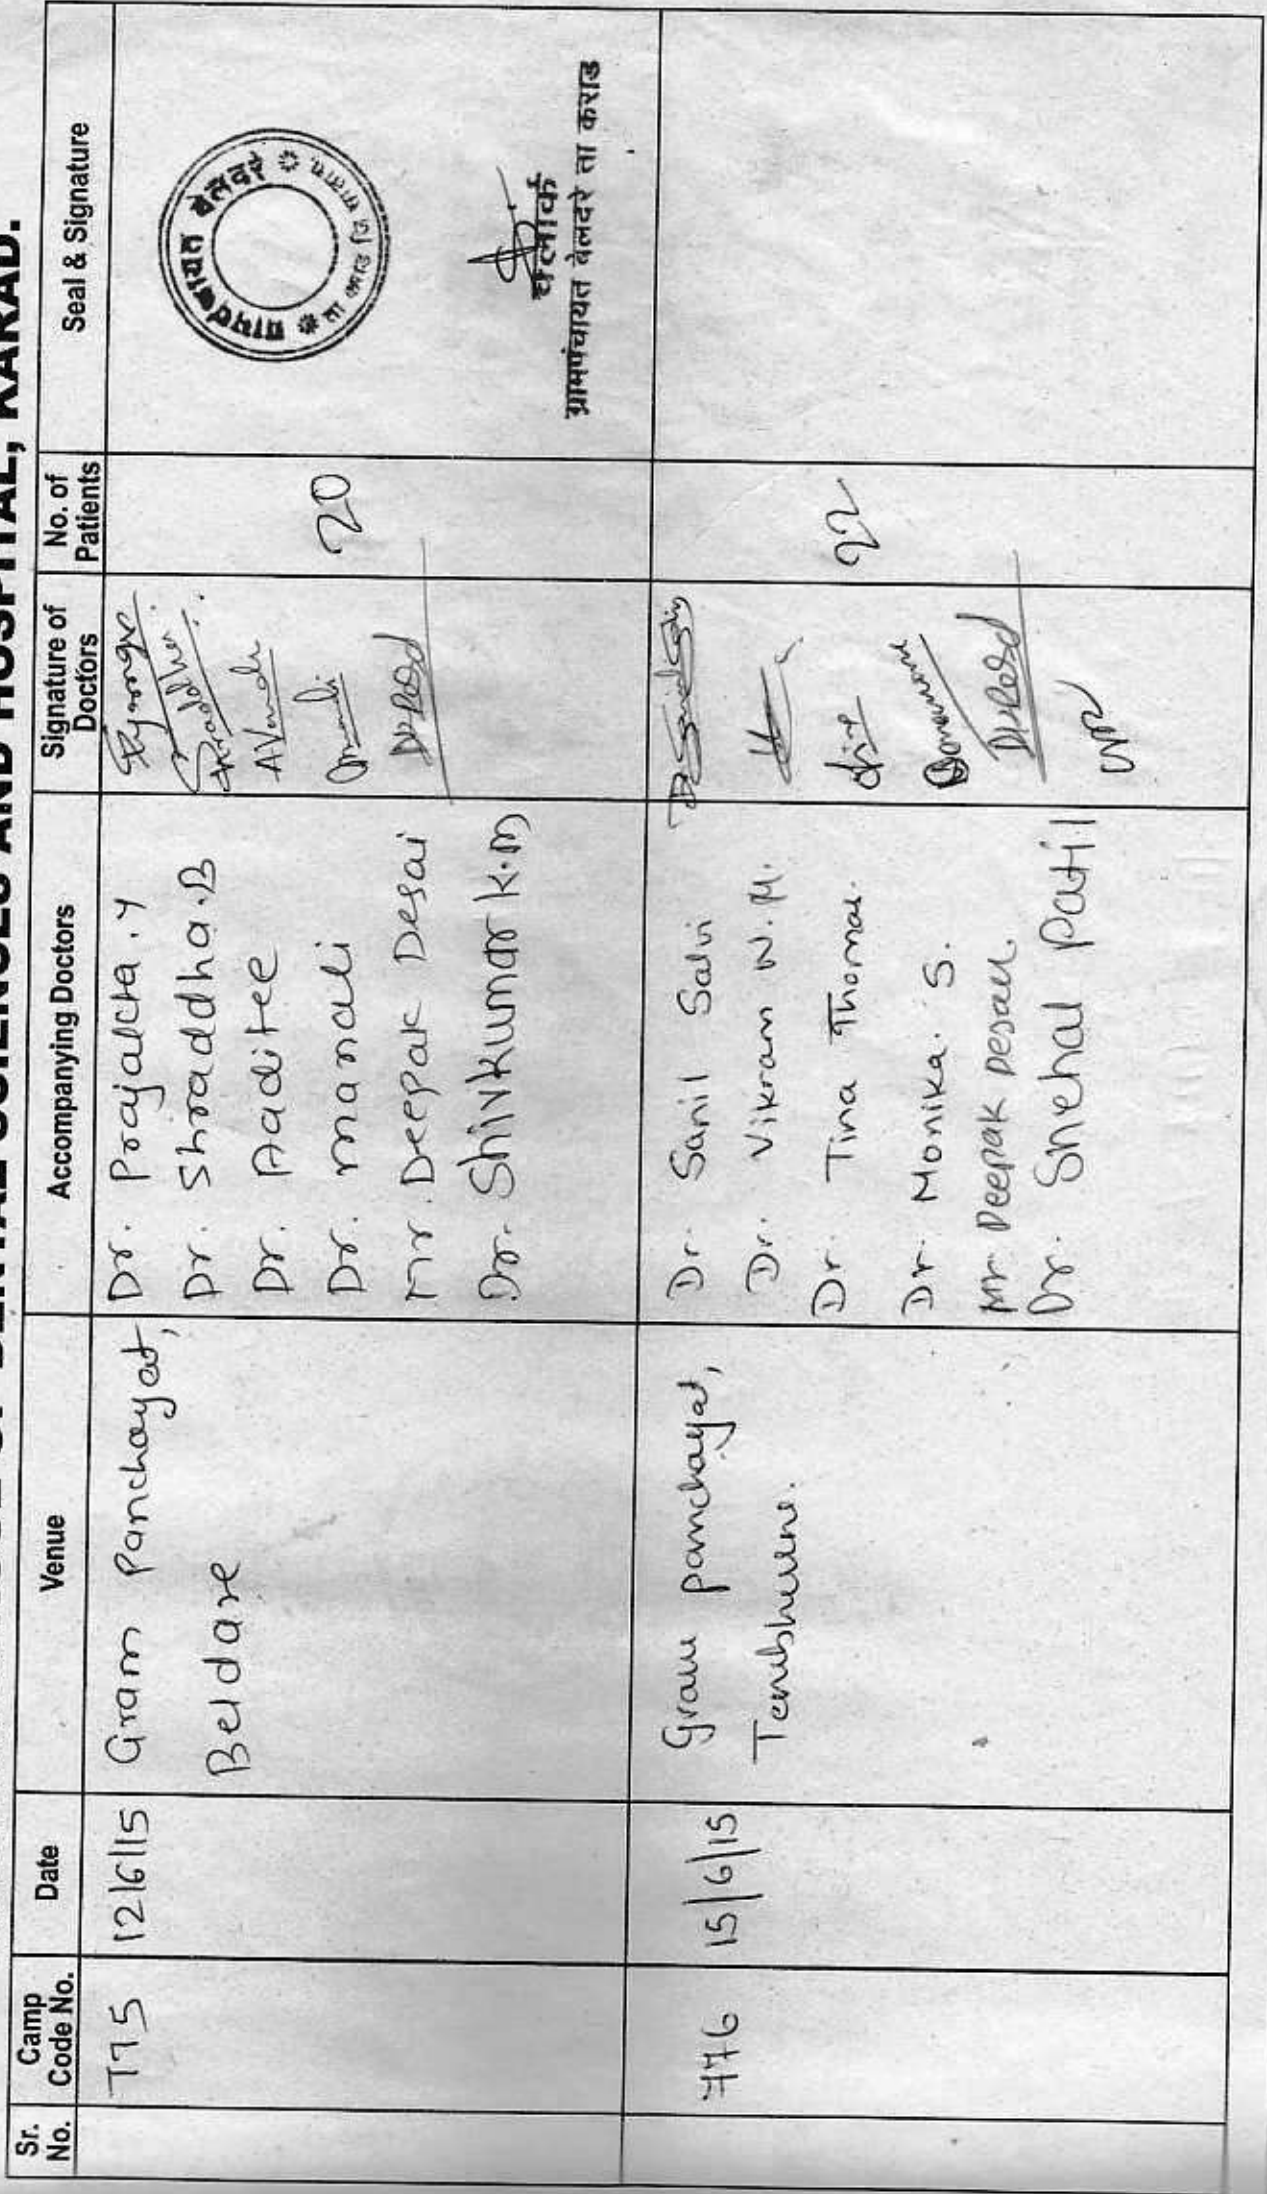 DENTAL SCIENCES AND HOSPITAL, KARAD.
Sr. No.
Camp Code No.
Date
Venue
Accompanying Doctors
Signature of Doctors
No. of Patients
Seal & Signature
775
12/6/15
Gram Panchayat,
Beldare
Dr. Prajakta.Y
Dr. Shraddha.B
Dr. Aaditee
Dr. manali
Mr. Deepak Desai
Dr. Shivkumar K.M
20
ग्रामपंचायत बेलदरे
ता कराड जि सातारा
क्लार्क
ग्रामपंचायत बेलदरे ता कराड
776
15/6/15
Gram panchayat,
Dr. Sanil Salvi
Dr. Vikram N.M.
Dr. Tina Thomas.
Dr. Monika. S.
Mr. Deepak Desai
Dr. Snehal Patil
22